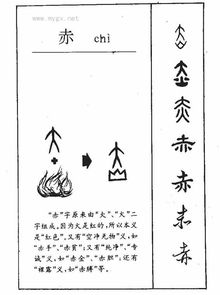 www.mygx.net
赤 chì
“赤”字原来由“大”、“火”二
字组成。因为火是红的,所以本义
是“红色”。又有“空净无物”义,如
“赤手”、“赤贫”;又有“纯净”、“专
诚”义,如“赤金”、“赤胆”;还有
“裸露”义,如“赤膊”等。
赤